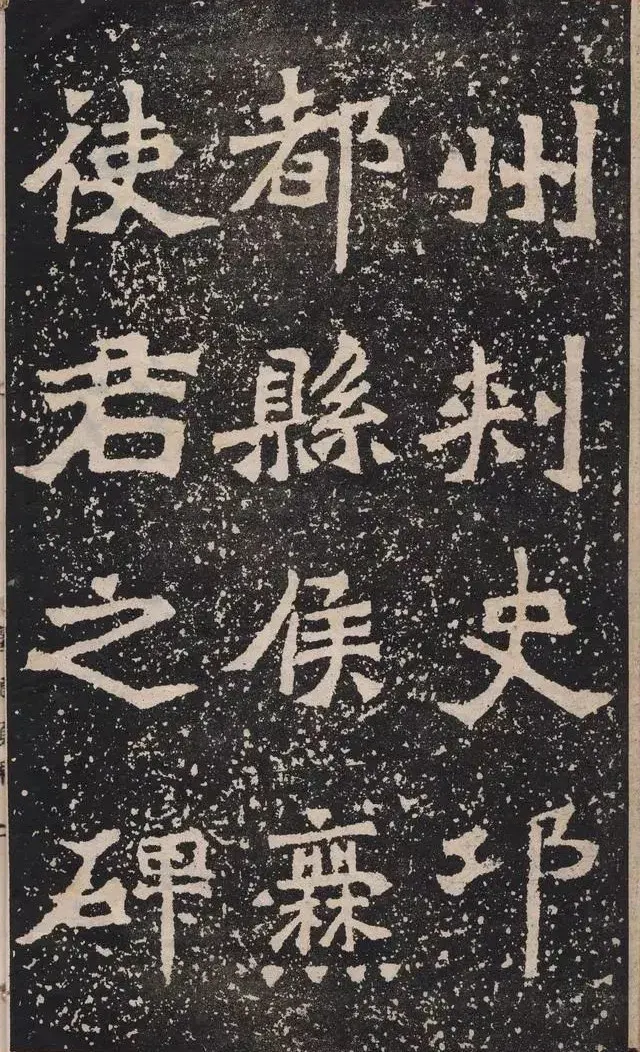 州刾史邛
都縣侯爨
使君之碑